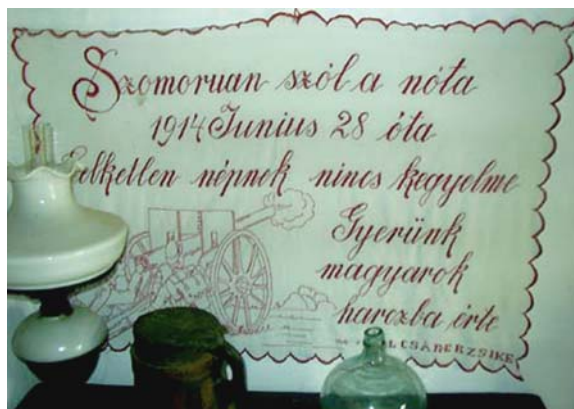 Szomoruan szól a nóta
1914 Junius 28 óta
Lelketlen népnek nincs kegyelme
Gyerünk
magyarok
harczba érte